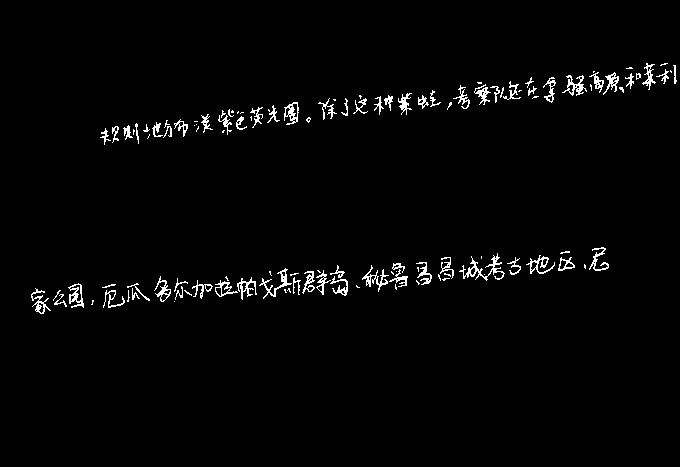 规则地分布淡紫色荧光圈。除了这种紫蛙，考察队还在拿骚高原和莱利
家公园，厄瓜多尔加拉帕戈斯群岛、秘鲁昌昌城考古地区、尼